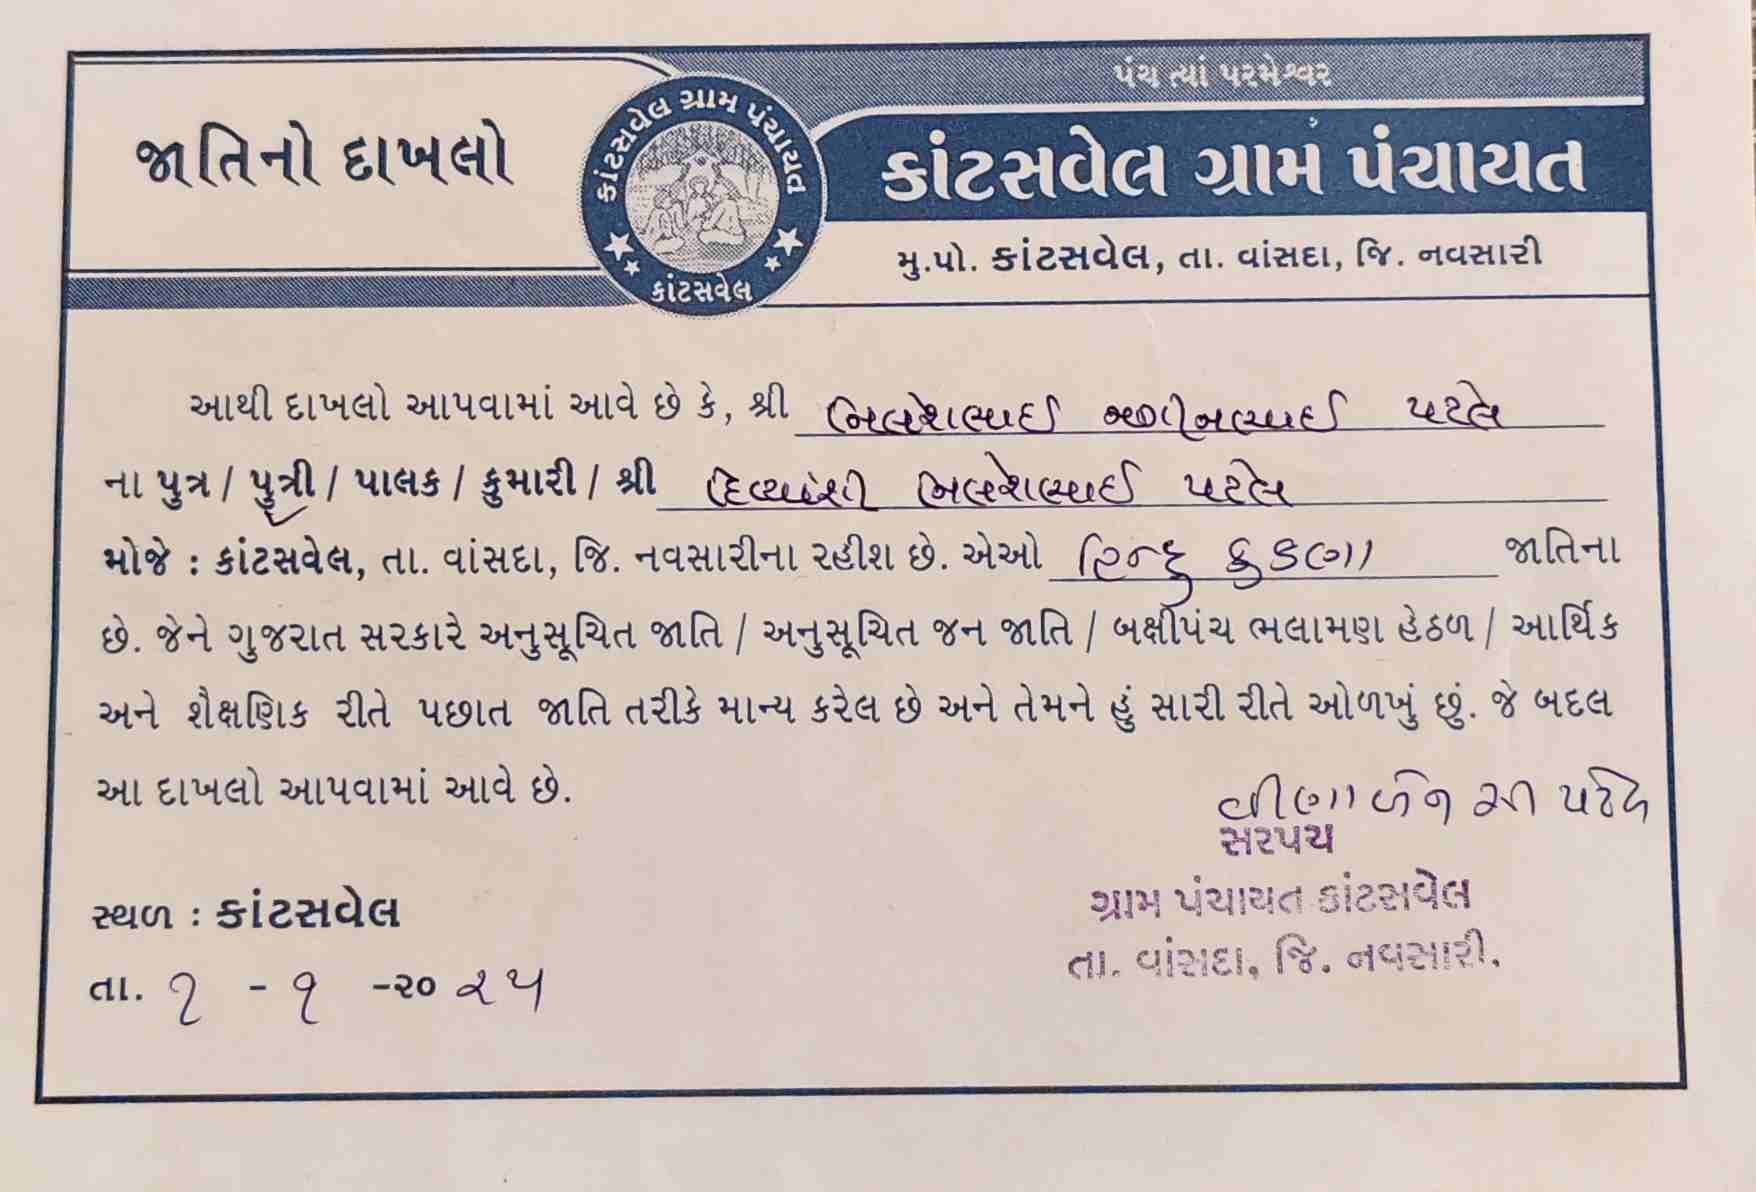 પંચ ત્યાં પરમેશ્વર
જાતિનો દાખલો
કાંટસવેલ ગ્રામ પંચાયત
કાંટસવેલ
કાંટસવેલ ગ્રામ પંચાયત
મુ.પો. કાંટસવેલ, તા. વાંસદા, જિ. નવસારી
આથી દાખલો આપવામાં આવે છે કે, શ્રી નિલેશભાઈ પટેલ
ના પુત્ર / પુત્રી / પાલક / કુમારી / શ્રી દિવ્યાંશી નિલેશભાઈ પટેલ
મોજે : કાંટસવેલ, તા. વાંસદા, જિ. નવસારીના રહીશ છે. એઓ હિન્દુ કુકણા જાતિના
છે. જેને ગુજરાત સરકારે અનુસૂચિત જાતિ / અનુસૂચિત જન જાતિ / બક્ષીપંચ ભલામણ હેઠળ / આર્થિક
અને શૈક્ષણિક રીતે પછાત જાતિ તરીકે માન્ય કરેલ છે અને તેમને હું સારી રીતે ઓળખું છું. જે બદલ
આ દાખલો આપવામાં આવે છે.
વીણાબેન પટેલ
સરપચ
ગ્રામ પંચાયત કાંટસવેલ
તા. વાંસદા, જિ. નવસારી.
સ્થળ : કાંટસવેલ
તા. ૧ - ૧ -૨૦૨૫